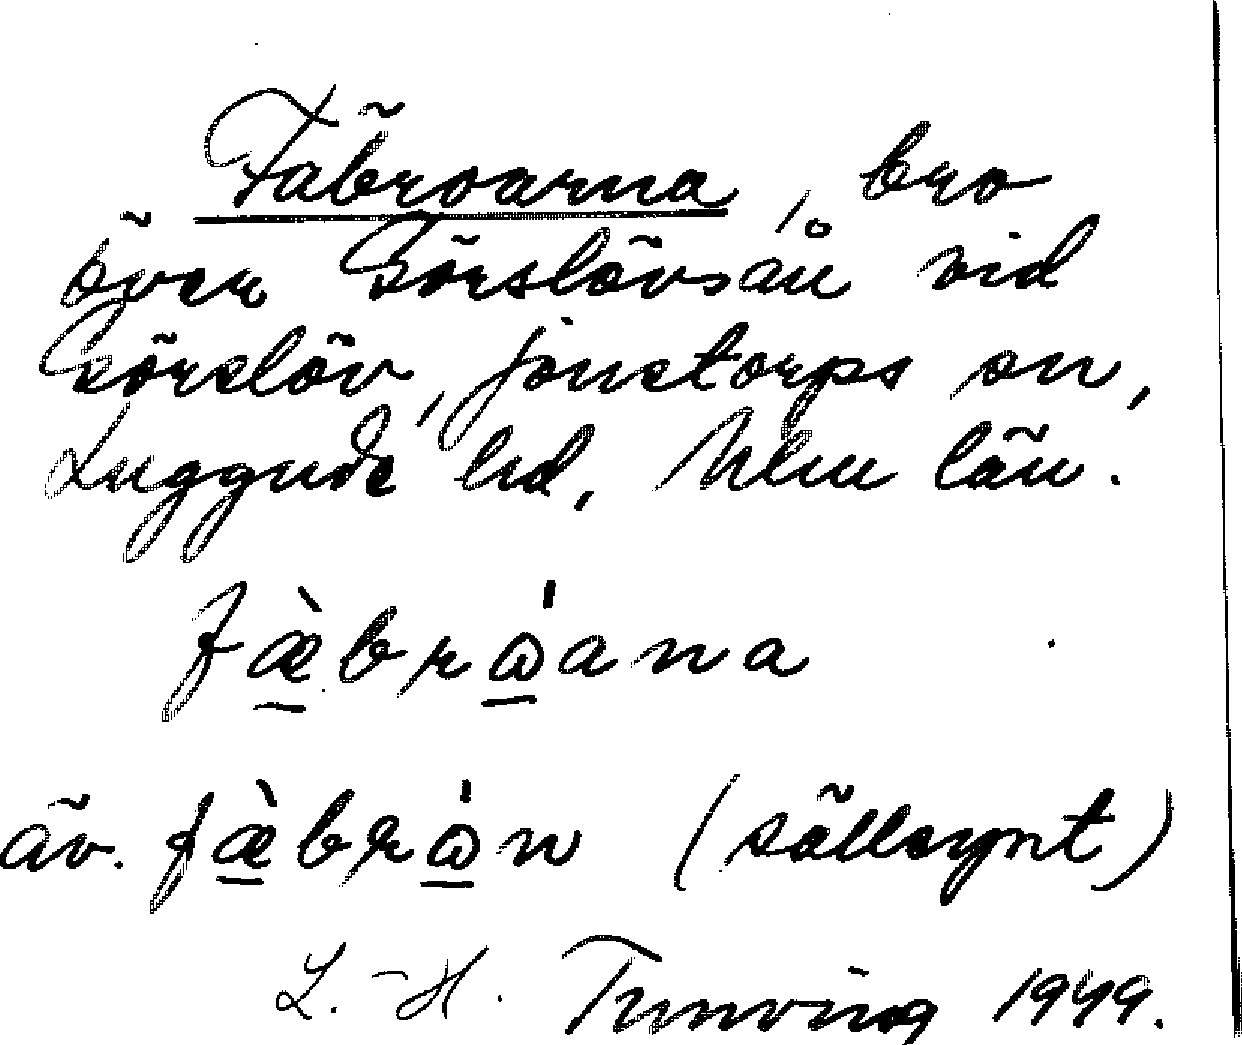 Fäbroarna, bro
över Görslövsån vid
Görslöv, Jonstorps sn,
Luggude hd, Mlm län.
fæ̠̀brώ̠ana
äv. fæ̠̀brώ̠n (sällsynt)
L.-H. Tunving 1949.